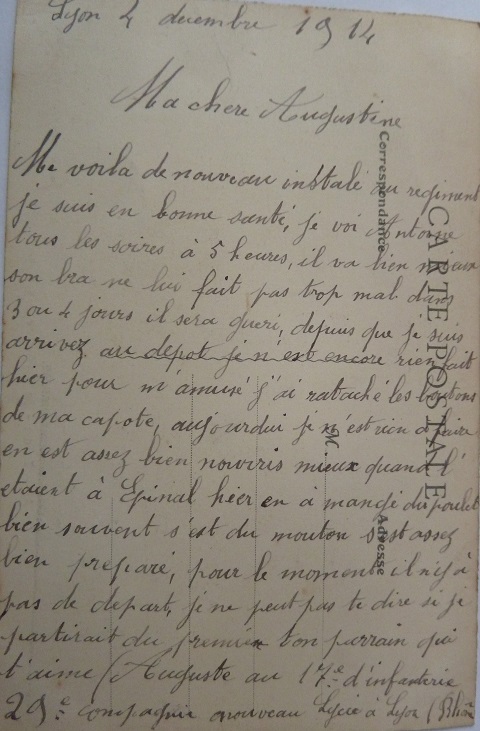 Lyon 4 decembre 1914
Ma chere Augustine
Me voila de nouveau instalé au regiment
je suis en bonne santé, je voi Antoine
tous les soires à 5 heures, il va bien mieux
son bra ne lui fait pas trop mal dans
3 ou 4 jours il sera gueri, depuis que je suis
arrivez au depot je n'est encore rien fait
hier pour m'amusé j'ai rataché les boutons
de ma capote, aujourdui je n'est rien a faire
en est assez bien nouriris mieux quand l'
etaient à Epinal hier en à mangé du poulet
bien souvent s'est du mouton s'est assez
bien preparé, pour le moment il n'y à
pas de depart, je ne peut pas te dire si je
partirait du premier ton parrain qui
t'aime Auguste au 17e d'infanterie
29e compagnie nouveau Lycée à Lyon (Rhône
CARTE POSTALE
Correspondance
Adresse
M